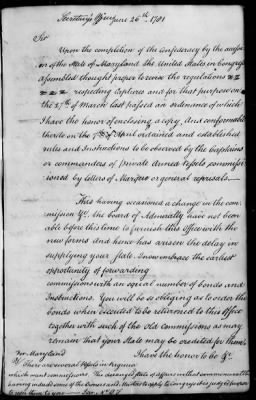 Secretary's Office June 26th 1781
Sir
Upon the completion of the Confederacy by the acces=
ion of the State of Maryland the United States in Congress
assembled thought proper to revise the regulations
respecting Captures and for that purpose on
the 27th of March last passed an ordinance of which
I have the honor of enclosing a copy, and conformable
thereto on the 7th of April ordained and established
rules and Instructions to be observed by the Captains
or commanders of private Armed vessels commiss=
ioned by letters of Marque or general reprisals.
This having occasioned a change in the com=
mission &c. the board of Admiralty have not been
able before this time to furnish this office with the
new forms and hence has arisen the delay in
supplying your State. I now embrace the earliest
opportunity of forwarding
commissions with an equal number of bonds and
Instructions. You will be so obliging as to order the
bonds when executed to be returned to this office
together with such of the old Commissions as may
remain that your State may be credited for them.
I have the honor to be &c.
For Maryland
There are several vessels in Virginia
which want commissions. The deranged state of affairs in that